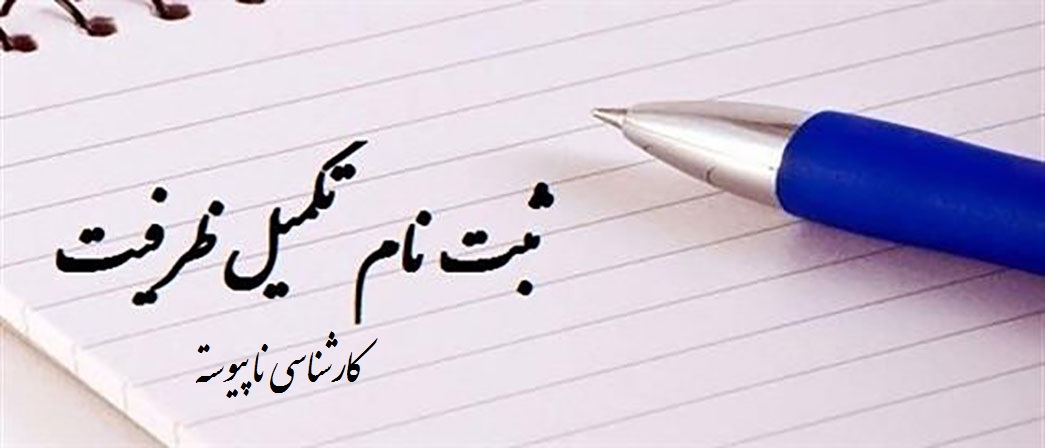 ثبت نام تکمیل ظرفیت
کارشناسی ناپیوسته